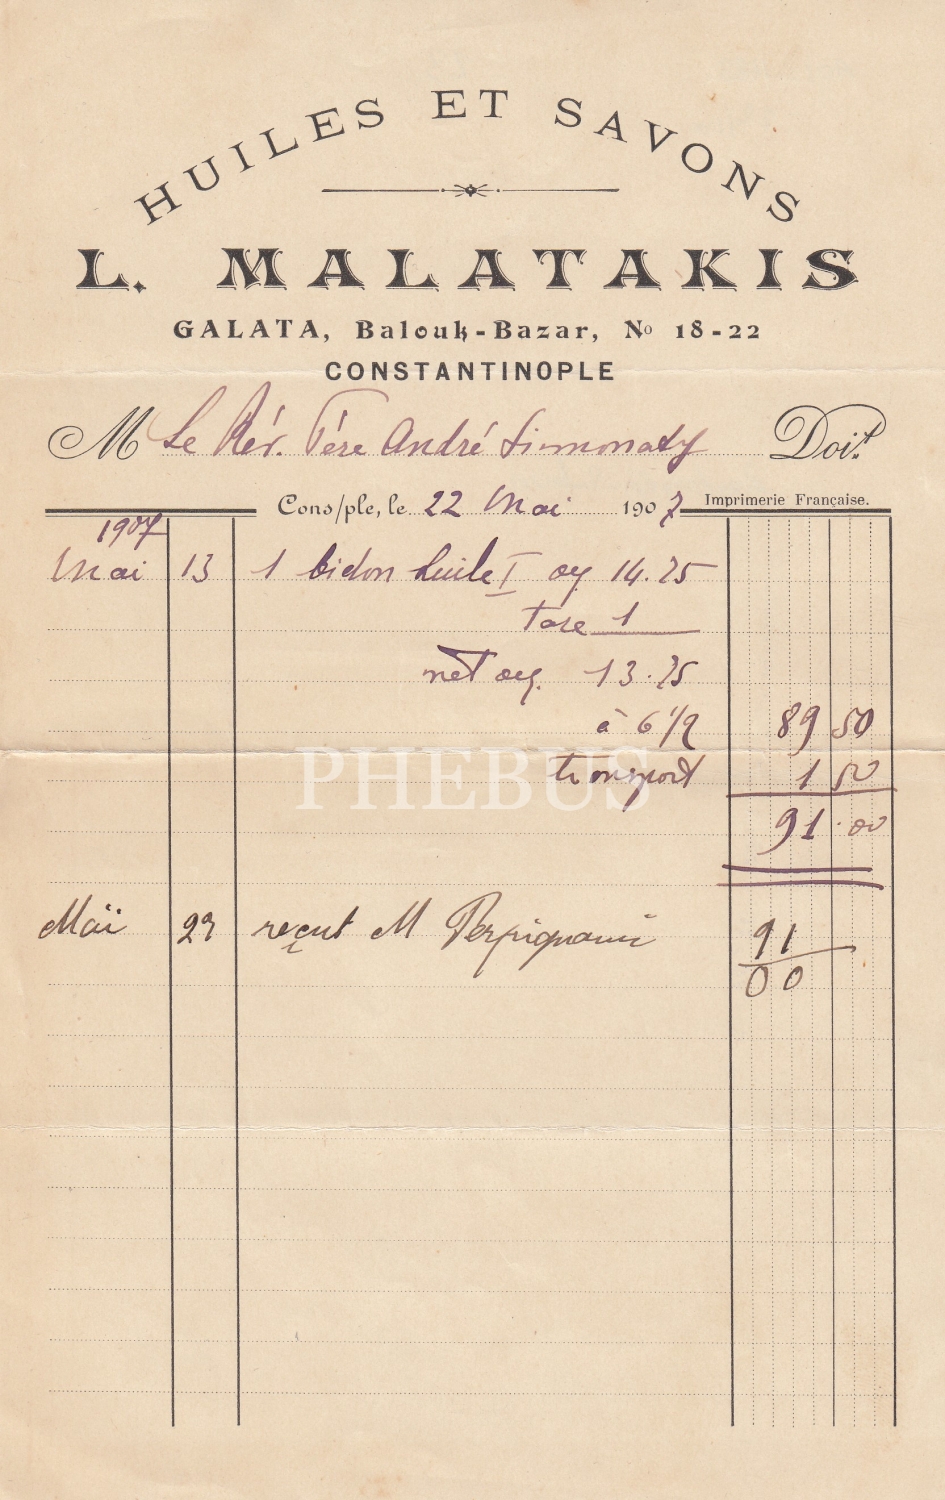 HUILES ET SAVONS
L. MALATAKIS
GALATA, Balouk-Bazar, No 18-22
CONSTANTINOPLE
M Le Rév. Père André Simonaty Doit
Cons/ple, le 22 Mai 1907
Imprimerie Française.
1907
Mai 13 1 bidon huile I oq 14.75
tare 1
net oq. 13.75
à 6 1/2 89 50
transport 1 50
91.00
PHEBUS
Maï 27 reçut M Perpignani 91
00